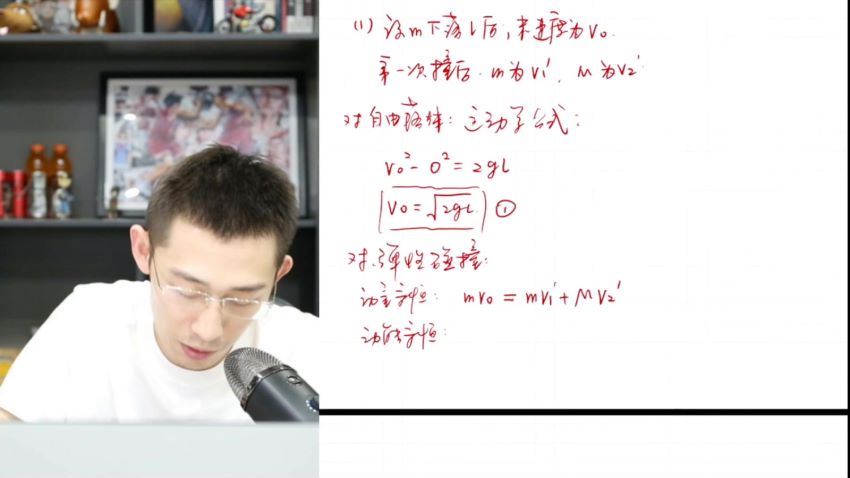 (1) 设m下落l后,末速度为v₀.
第一次撞后. m为v₁', M为v₂'
对自由落体: 运动学公式:
v₀² - 0² = 2gl
v₀ = √2gl ①
对弹性碰撞:
动量守恒: mv₀ = mv₁' + Mv₂'
动能守恒: